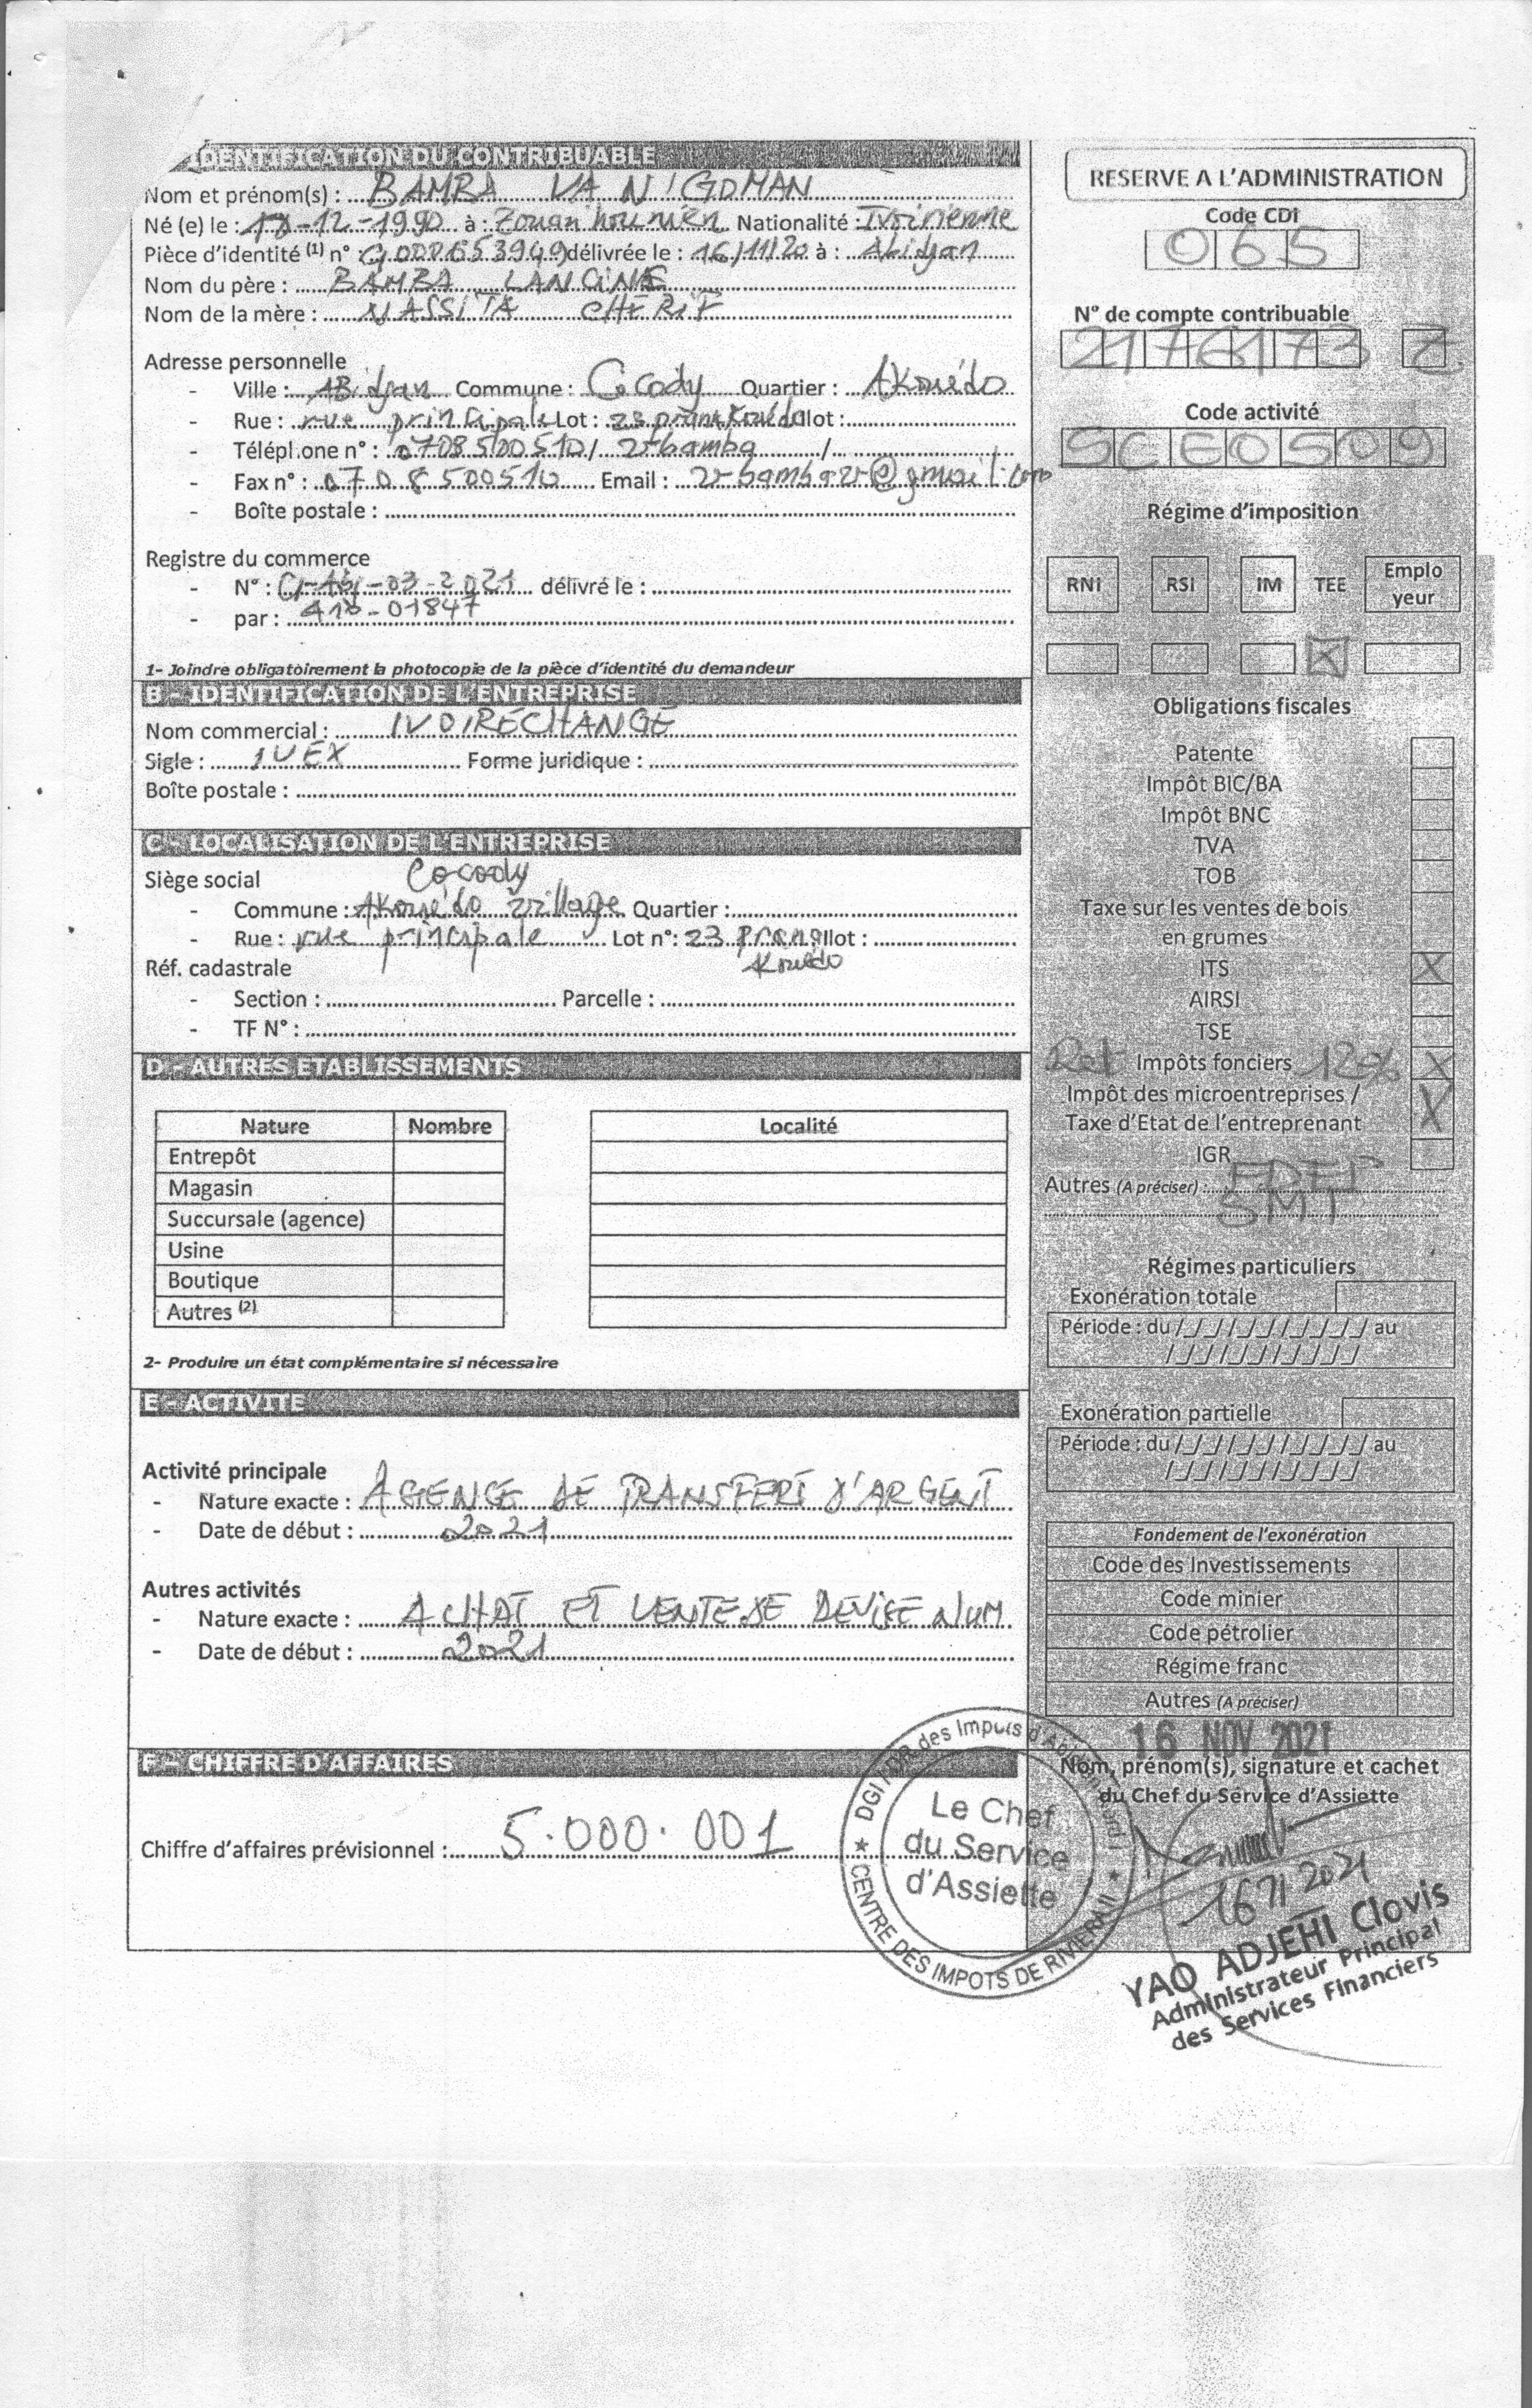 IDENTIFICATION DU CONTRIBUABLE
Nom et prénom(s) : BAMBA VA N'GOMAN
Né (e) le : -12-1990 à : Zouan hounien Nationalité : Ivoirienne
Pièce d'identité (1) n° : délivrée le : 16/11/20 à : Abidjan
Nom du père : BAMBA LANCINE
Nom de la mère : MASSITA CHERIF
Adresse personnelle
- Ville : ABidjan Commune : Cocody Quartier : AKouédo
- Rue : rue principale Lot : 23 Ilot :
- Téléphone n° : 0708500510 / /
- Fax n° : 0708500510 Email :
- Boîte postale :
Registre du commerce
- N° : CI-Abj-03-2021 délivré le :
- par : -01847
1- Joindre obligatoirement la photocopie de la pièce d'identité du demandeur
B - IDENTIFICATION DE L'ENTREPRISE
Nom commercial : IVOIRECHANGE
Sigle : IVEX Forme juridique :
Boîte postale :
C - LOCALISATION DE L'ENTREPRISE
Siège social Cocody
- Commune : AKouédo village Quartier :
- Rue : rue principale Lot n°: 23 Ilot :
Réf. cadastrale
- Section : Parcelle :
- TF N° :
D - AUTRES ETABLISSEMENTS
Nature Nombre Localité
Entrepôt
Magasin
Succursale (agence)
Usine
Boutique
Autres (2)
2- Produire un état complémentaire si nécessaire
E - ACTIVITE
Activité principale
- Nature exacte : AGENCE DE TRANSFERT D'ARGENT
- Date de début : 2021
Autres activités
- Nature exacte : ACHAT ET VENTE DE DEVISE NUM
- Date de début : 2021
F - CHIFFRE D'AFFAIRES
Chiffre d'affaires prévisionnel : 5.000.001
RESERVE A L'ADMINISTRATION
Code CDI
065
N° de compte contribuable
2176173 Z
Code activité
SCE0S09
Régime d'imposition
RNI RSI IM TEE Emplo
yeur
X
Obligations fiscales
Patente
Impôt BIC/BA
Impôt BNC
TVA
TOB
Taxe sur les ventes de bois
en grumes
ITS X
AIRSI
TSE
Ret Impôts fonciers 12% X
Impôt des microentreprises /
Taxe d'Etat de l'entreprenant X
IGR
Autres (A préciser) :
SMT
Régimes particuliers
Exonération totale
Période : du /_/_/_/_/_/_/_/_/_/ au
/_/_/_/_/_/_/_/_/_/
Exonération partielle
Période : du /_/_/_/_/_/_/_/_/_/ au
/_/_/_/_/_/_/_/_/_/
Fondement de l'exonération
Code des Investissements
Code minier
Code pétrolier
Régime franc
Autres (A préciser)
16 NOV 2021
Nom, prénom(s), signature et cachet
du Chef du Service d'Assiette
DGI / DR des Impots d'Abidjan Nord I
Le Chef
du Service
d'Assiette
CENTRE DES IMPOTS DE RIVIERA II
16 11 2021
YAO ADJEHI Clovis
Administrateur Principal
des Services Financiers